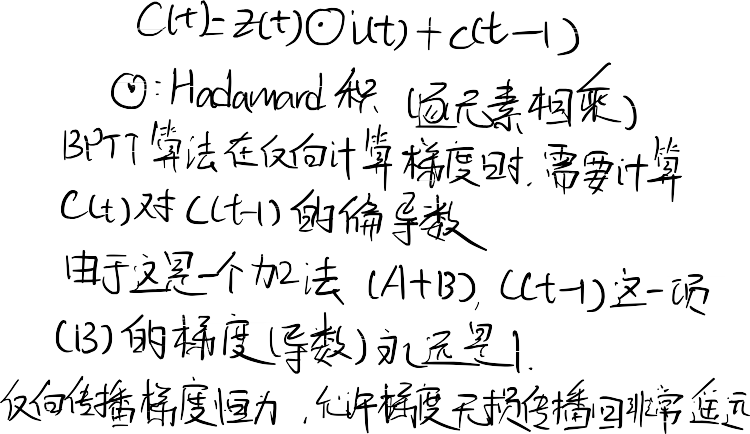 C(t)=z(t)⊙i(t)+c(t-1)
⊙:Hadamard 积 (逐元素相乘)
BPTT算法在反向计算梯度时,需要计算
C(t)对C(t-1)的偏导数
由于这是一个加法(A+B),C(t-1)这一项
(B)的梯度(导数)永远是1.
反向传播梯度恒为1,允许梯度无损传播回非常遥远